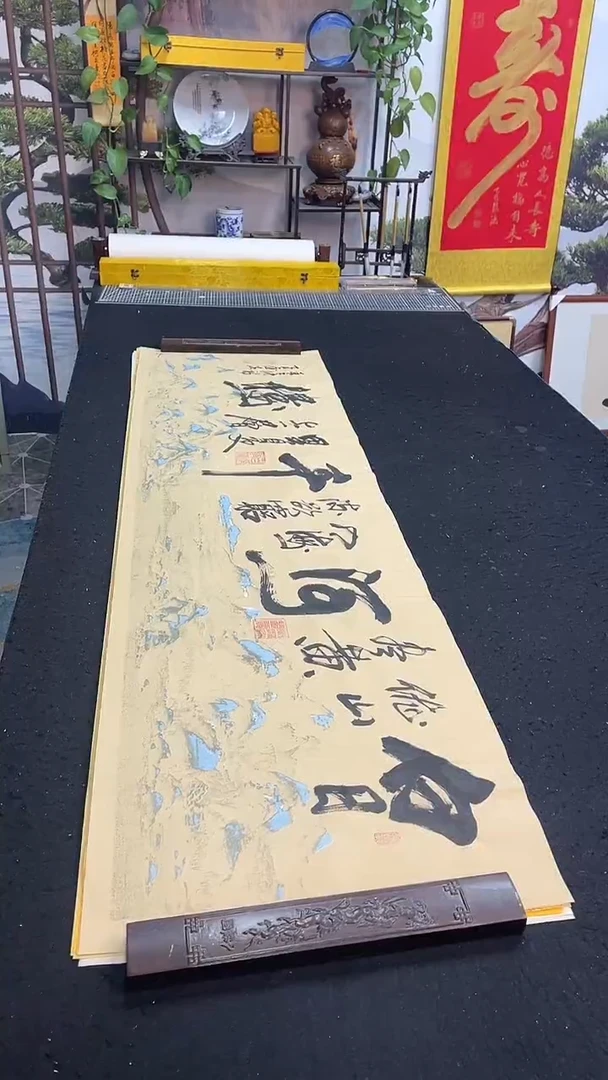 白日
依山
尽黄
河
入海
流欲窮
千
里目更
上一層
樓
寿
德高人長寿
心宽福自来